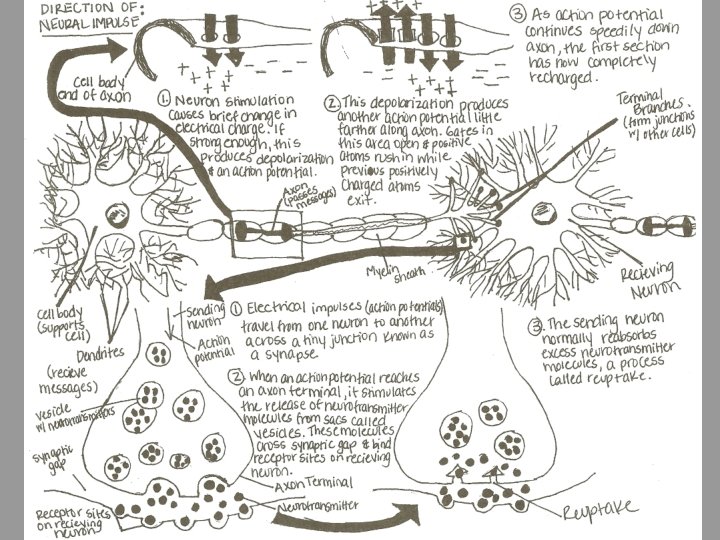 DIRECTION OF:
NEURAL IMPULSE
Cell body
end of axon
① Neuron stimulation
causes brief change in
electrical charge. If
strong enough, this
produces depolarization
& an action potential.
② This depolarization produces
another action potential little
farther along axon. Gates in
this area open & positive
atoms rush in while
previous positively
charged atoms
exit.
③ As action potential
continues speedily down
axon, the first section
has now completely
recharged.
Terminal
Branches.
(form junctions
w/ other cells)
Axon
(passes
messages)
Myelin
sheath
Recieving
Neuron
Cell body
(supports
cell)
Dendrites
(recieve
messages)
sending
neuron
Action
potential
① Electrical impulses (action potentials)
travel from one neuron to another
across a tiny junction known as
a synapse.
② When an action potential reaches
an axon terminal, it stimulates
the release of neurotransmitter
molecules from sacs called
vesicles. These molecules
cross synaptic gap & bind
receptor sites on recieving
neuron.
③ The sending neuron
normally reabsorbs
excess neurotransmitter
molecules, a process
called reuptake.
vesicle
w/ neurotransmitters
synaptic
gap
Axon Terminal
Neurotransmitter
Receptor sites
on recieving
neuron
Reuptake